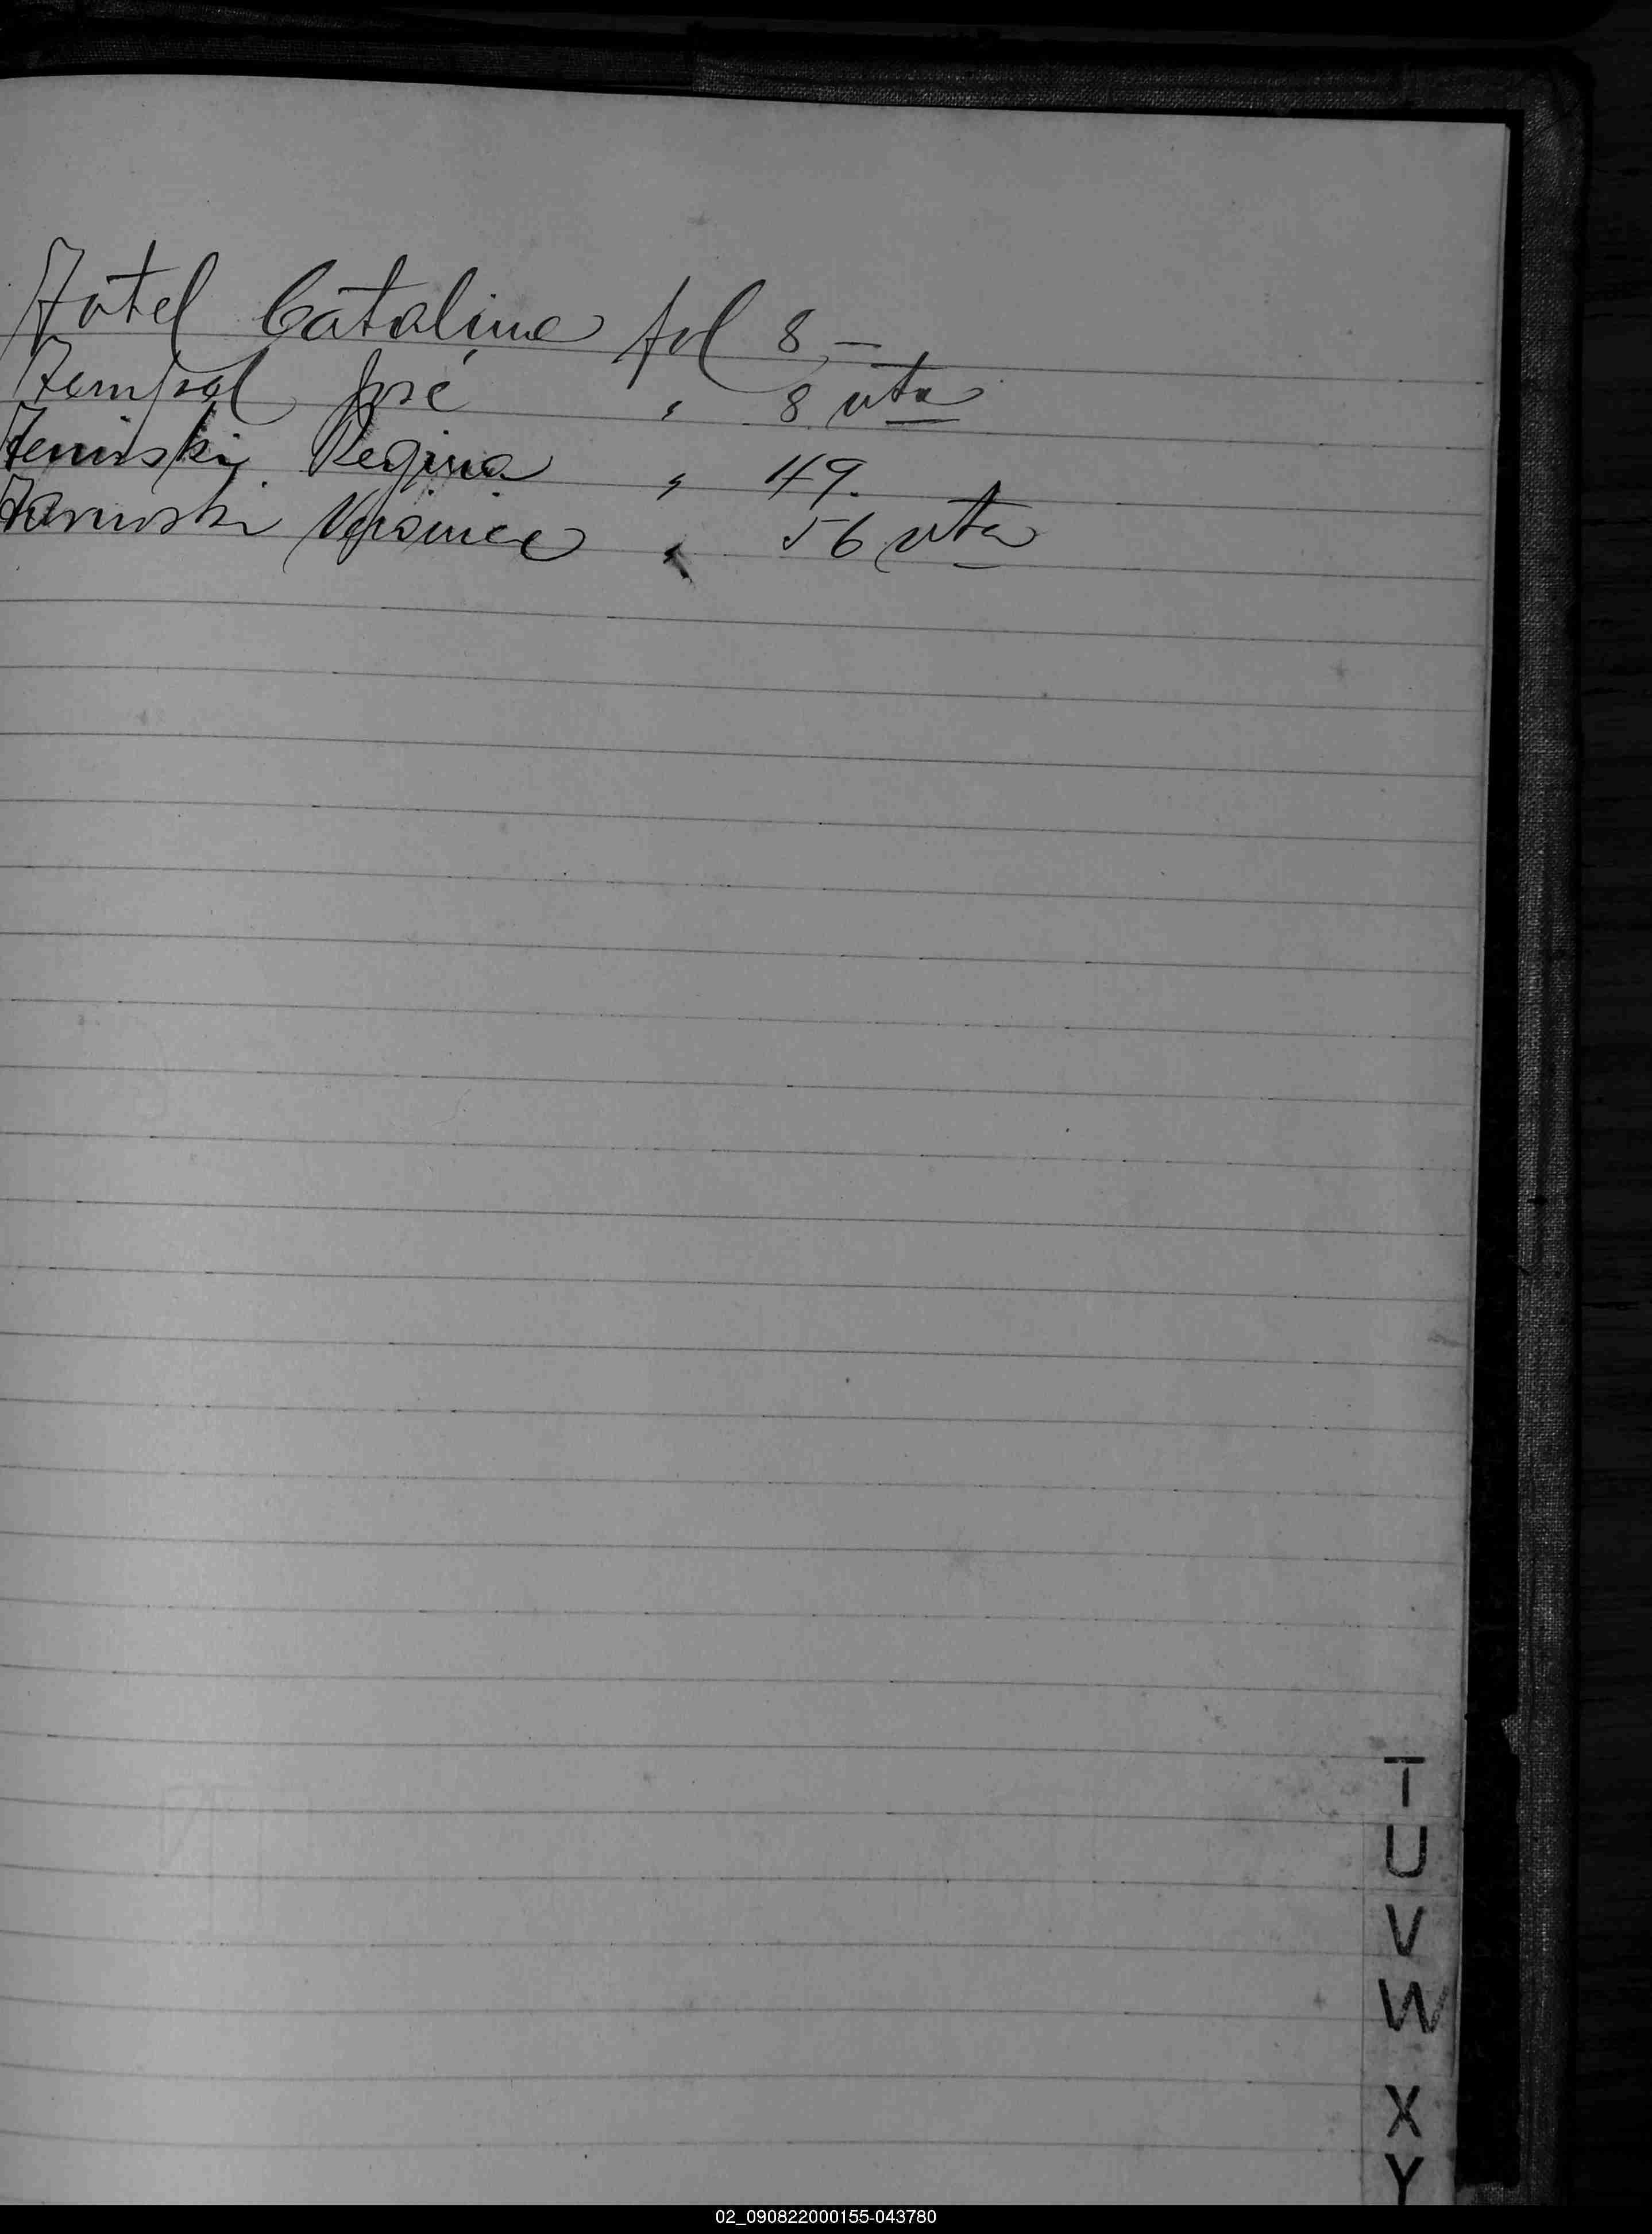 Totel Catalina fol 8 –
Tempsal José " 8 vta
Teminski Regina " 49.
Taruoski Veronica " 56 vta
T
U
V
W
X
Y
02_090822000155-043780